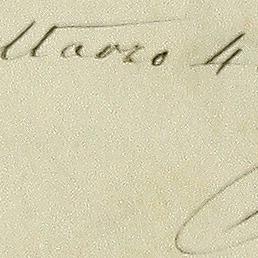 Marzo 4